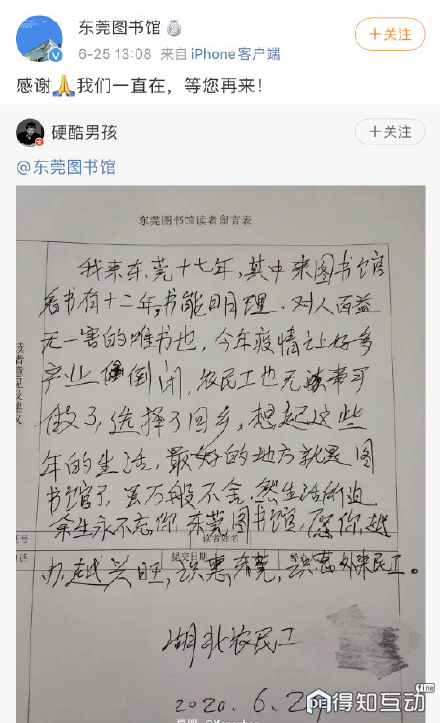 东莞图书馆
6-25 13:08 来自 iPhone客户端
+关注
感谢🙏我们一直在，等您再来！
硬酷男孩
+关注
@东莞图书馆
东莞图书馆读者留言表
读者意见及建议
我来东莞十七年，其中来图书馆
看书有十二年，书能明理，对人百益
无一害的唯书也，今年疫情让好多
产业倒闭，农民工也无事可
做了，选择了回乡，想起这些
年的生活，最好的地方就是图
书馆了，虽万般不舍，然生活所迫
余生永不忘你，东莞图书馆，愿你越
读者姓名
提交日期
办越兴旺，识惠东莞，识惠外来民工。
湖北农民工
2020.6.24
得知互动
fine